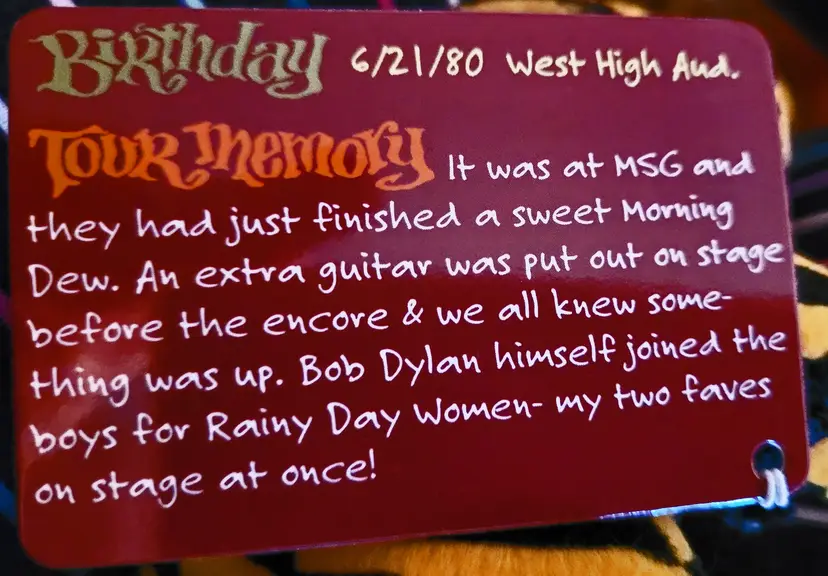 Birthday 6/21/80 West High Aud.
Tour Memory It was at MSG and
they had just finished a sweet Morning
Dew. An extra guitar was put out on stage
before the encore & we all knew some-
thing was up. Bob Dylan himself joined the
boys for Rainy Day Women- my two faves
on stage at once!